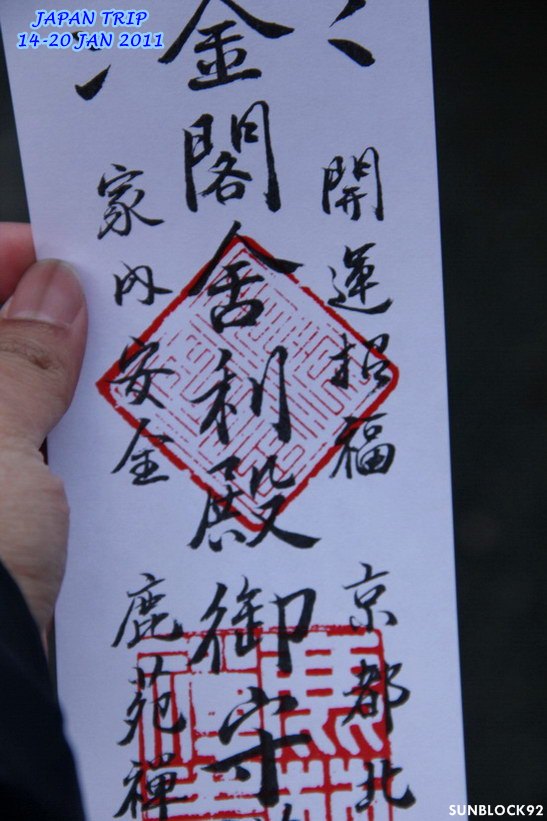 JAPAN TRIP
14-20 JAN 2011
開運招福
京都北
金閣舎利殿御守
家内安全
鹿苑禅
SUNBLOCK92